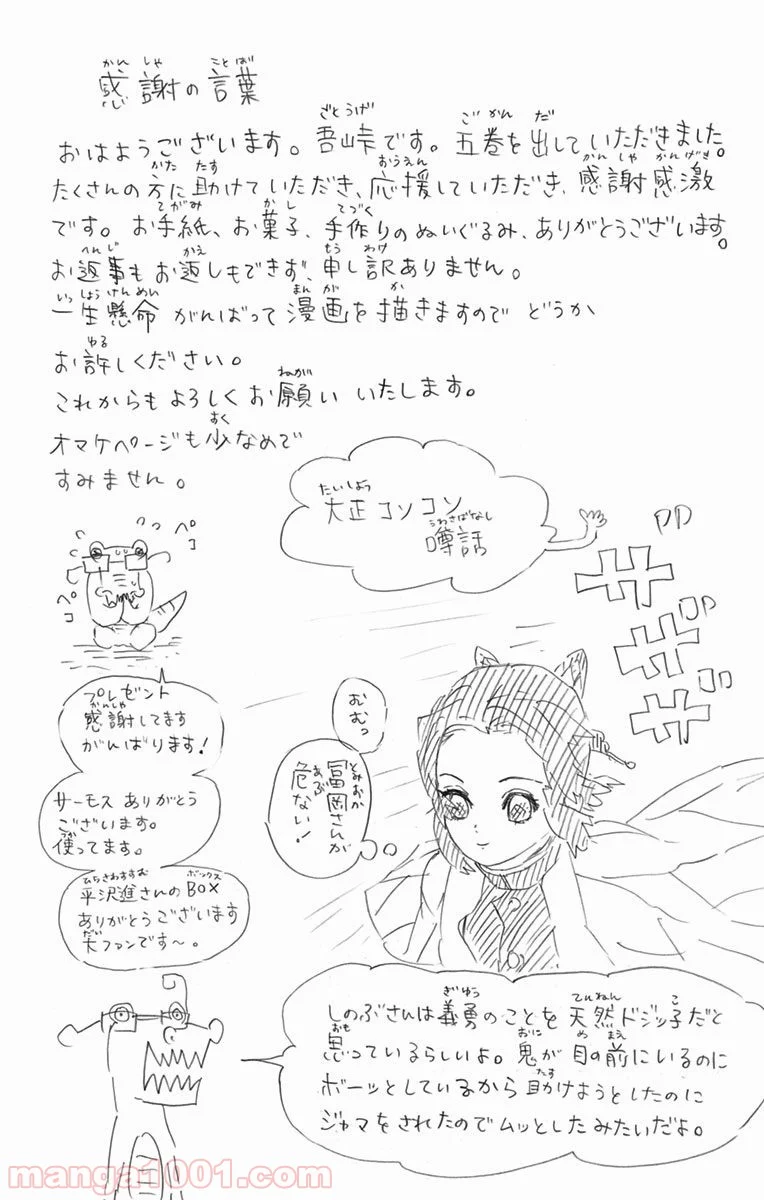 感謝の言葉
おはようございます。吾峠です。五巻を出していただきました。
たくさんの方に助けていただき、応援していただき、感謝感激
です。お手紙、お菓子、手作りのぬいぐるみ、ありがとうございます。
お返事もお返しもできず、申し訳ありません。
一生懸命がんばって漫画を描きますのでどうか
お許しください。
これからもよろしくお願いいたします。
オマケページも少なめで
すみません。
大正コソコソ
噂話
ペコ
ペコ
ザザザ
プレゼント
感謝してます
がんばります!
サーモスありがとう
ございます。
使ってます。
平沢進さんのBOX
ありがとうございます
大ファンです〜。
むむっ
冨岡さんが
危ない!
しのぶさんは義勇のことを天然ドジッ子だと
思っているらしいよ。鬼が目の前にいるのに
ボーッとしているから助けようとしたのに
ジャマをされたのでムッとしたみたいだよ。
manga1001.com